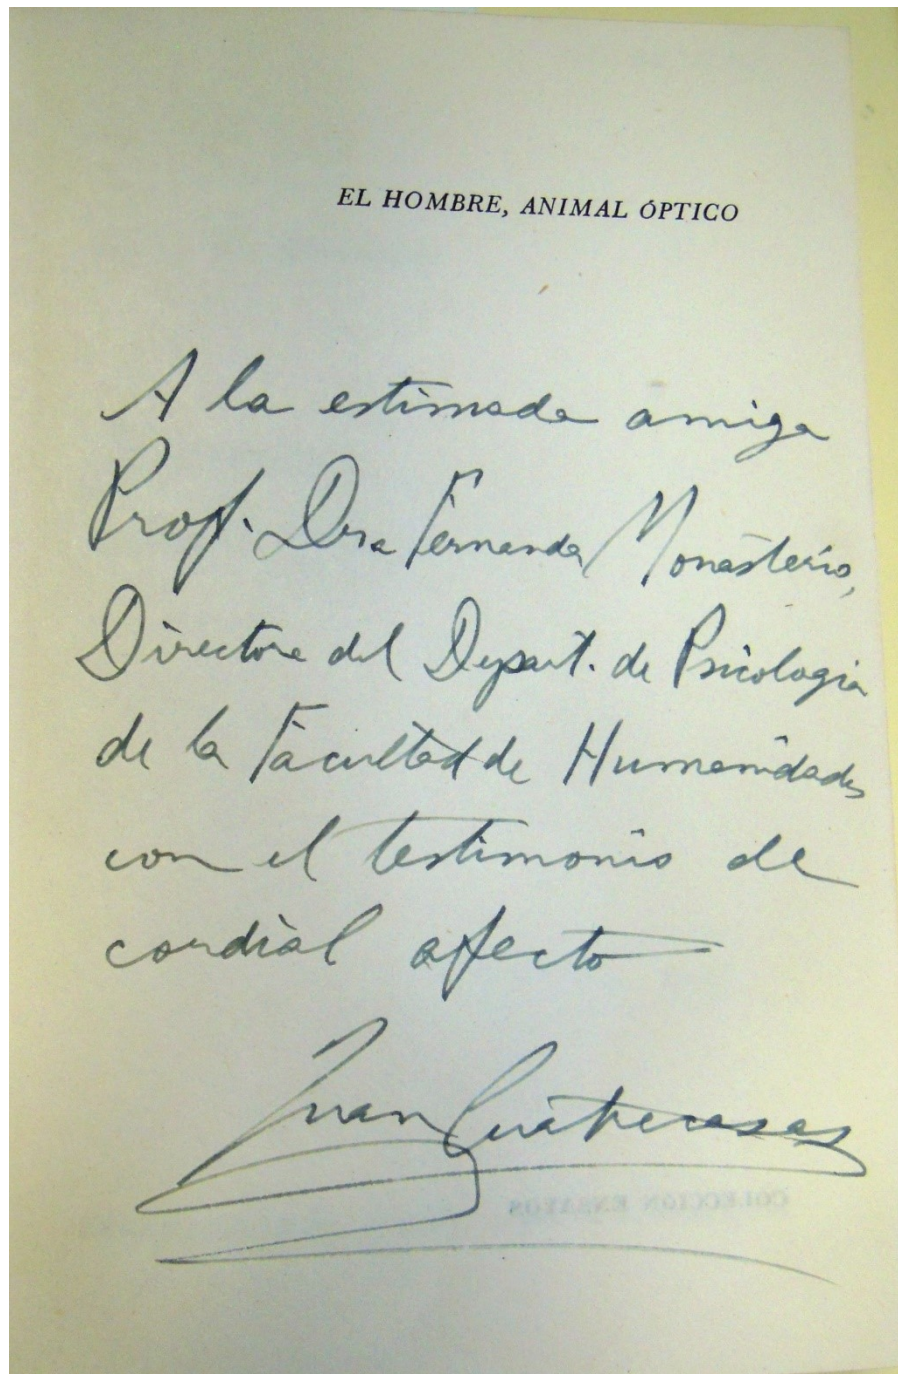 EL HOMBRE, ANIMAL ÓPTICO
A la estimada amiga
Prof. Dra Fernanda Monasterio,
Directora del Depart. de Psicologia
de la Facultad de Humanidades
con el testimonio de
cordial afecto
Juan Cuatrecasas
COLECCION ENSAYOS